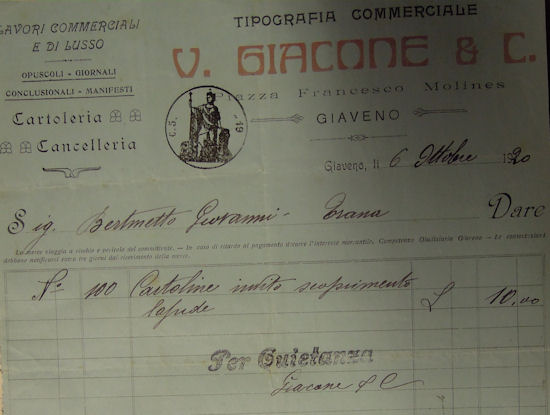 LAVORI COMMERCIALI
E DI LUSSO
OPUSCOLI - GIORNALI
CONCLUSIONALI - MANIFESTI
Cartoleria
Cancelleria
TIPOGRAFIA COMMERCIALE
V. GIACONE & C.
Piazza Francesco Molines
GIAVENO
C. 5. 19
Giaveno, li 6 Ottobre 1920
Sig. Bertinetto Giovanni - Trana Dare
La merce viaggia a rischio e pericolo del committente. — In caso di ritardo al pagamento decorre l'interesse mercantile. Competenza Giudiziaria Giaveno — Le contestazioni
debbono notificarsi entro tre giorni dal ricevimento della merce.
N° 100 Cartoline invito scoprimento £ 10,00
lapide
Per Quietanza
Giacone & C